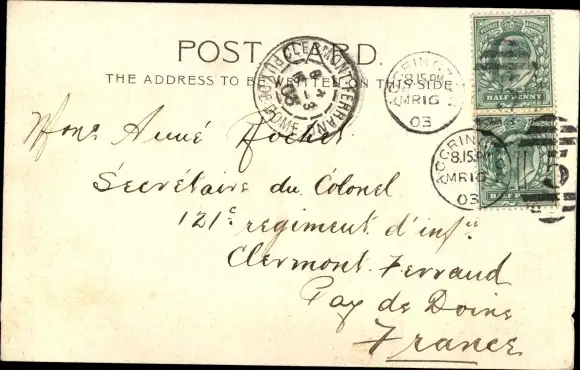 POST CARD.
THE ADDRESS TO BE WRITTEN ON THIS SIDE
CLERMONT-FERRAND
PUY DE DOME
ACCRINGTON
8.15PM
MR16
03
HALF PENNY
ACCRINGTON
8.15PM
MR16
03
Monsr Aimé Rochet
Sécrétaire du Colonel
121e regiment d'infie
Clermont. Ferrand
Puy de Dome
France